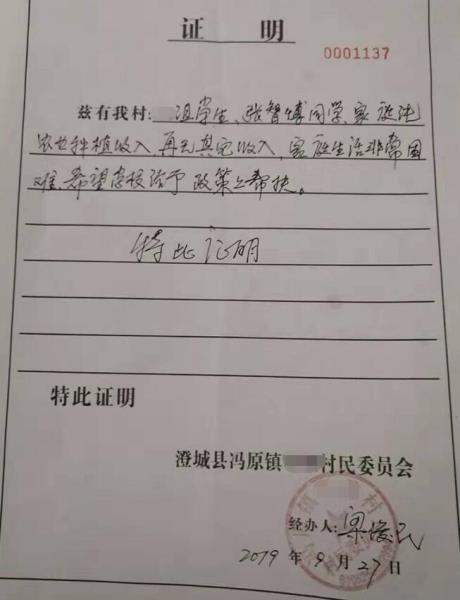 证 明
0001137
兹有我村: 组学生、张智博同学家庭纯
农业种植收入、再无其它收入、家庭生活非常困
难、希望学校给予政策上帮扶。
特此证明
特此证明
澄城县冯原镇 村民委员会
经办人:梁俊民
2019 年 9 月 27 日